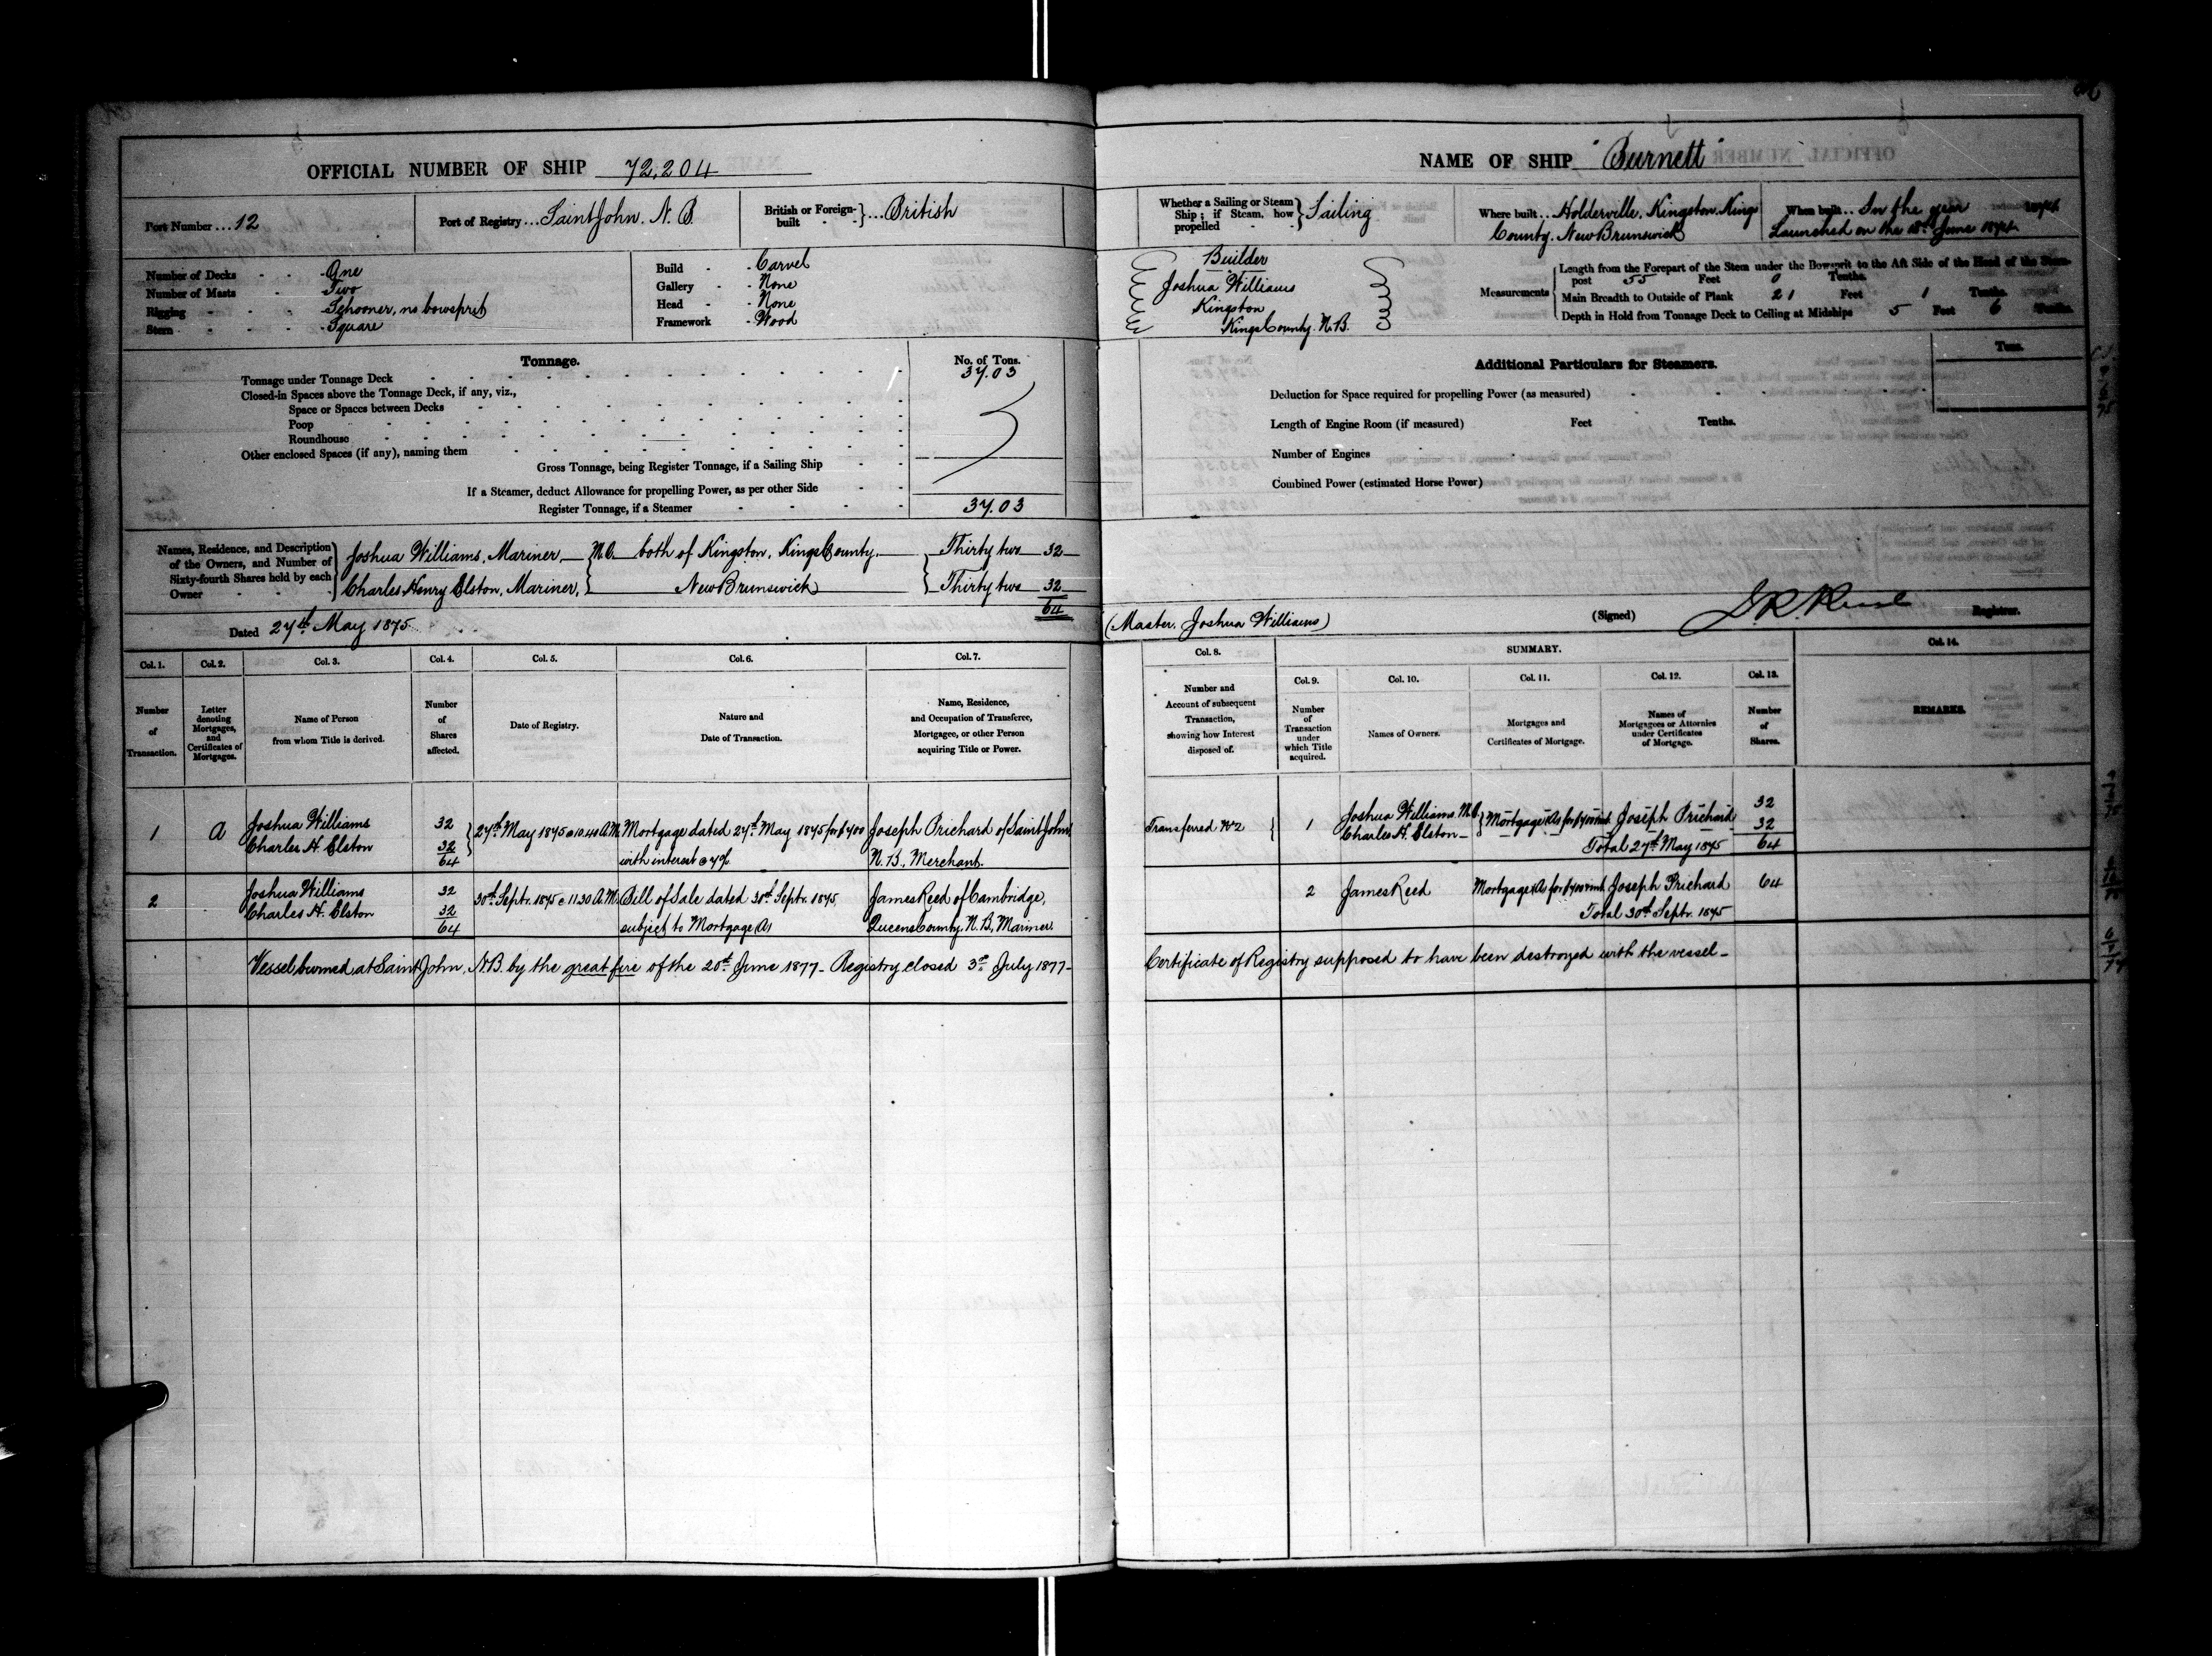 OFFICIAL NUMBER OF SHIP 72,204
Port Number ... 12
Port of Registry ... Saint John. N. B.
British or Foreign-built - - } ... British
Number of Decks - - - One
Number of Masts - - - Two
Rigging - - - - Schooner, no bowsprit
Stern - - - - Square
Build - - Carvel
Gallery - - None
Head - - None
Framework - Wood
Tonnage.
No. of Tons.
Tonnage under Tonnage Deck 37.03
Closed-in Spaces above the Tonnage Deck, if any, viz.,
Space or Spaces between Decks
Poop
Roundhouse
Other enclosed Spaces (if any), naming them
Gross Tonnage, being Register Tonnage, if a Sailing Ship
If a Steamer, deduct Allowance for propelling Power, as per other Side
Register Tonnage, if a Steamer 37.03
Names, Residence, and Description
of the Owners, and Number of
Sixty-fourth Shares held by each
Owner
Joshua Williams, Mariner, M.O. both of Kingston, Kings County Thirty two 32
Charles Henry Elston, Mariner, New Brunswick Thirty two 32
64
Dated 27th May 1875
Col. 1. Col. 2. Col. 3. Col. 4. Col. 5. Col. 6. Col. 7.
Number
of
Transaction.
Letter
denoting
Mortgages,
and
Certificates of
Mortgages.
Name of Person
from whom Title is derived.
Number
of
Shares
affected.
Date of Registry.
Nature and
Date of Transaction.
Name, Residence,
and Occupation of Transferee,
Mortgagee, or other Person
acquiring Title or Power.
1 A Joshua Williams 32 27th May 1875 @ 10.40 A.M. Mortgage dated 27th May 1875 for $400 Joseph Prichard of Saint John,
Charles H. Elston 32 with interest @ 7% N.B., Merchant.
64
2 Joshua Williams 32 30th Septr. 1875 @ 11.30 A.M. Bill of Sale dated 30th Septr. 1875, James Reed of Cambridge,
Charles H. Elston 32 subject to Mortgage A, Queens County, N.B., Mariner.
64
Vessel burned at Saint John, N.B. by the great fire of the 20th June 1877 - Registry closed 3rd July 1877 -
NAME OF SHIP "Burnett"
Whether a Sailing or Steam
Ship; if Steam, how
propelled - -
Sailing
Where built ... Holderville, Kingston, Kings
County, New Brunswick
When built ... In the year 1874
Launched on the June 1874
Builder
Joshua Williams
Kingston
Kings County. N.B.
Measurements
Length from the Forepart of the Stem under the Bowsprit to the Aft Side of the Head of the Stern-
post 55 Feet 0 Tenths.
Main Breadth to Outside of Plank 21 Feet 1 Tenths.
Depth in Hold from Tonnage Deck to Ceiling at Midships 5 Feet 6 Tenths.
Additional Particulars for Steamers.
Tons.
Deduction for Space required for propelling Power (as measured)
Length of Engine Room (if measured) Feet Tenths.
Number of Engines
Combined Power (estimated Horse Power)
(Master, Joshua Williams)
(Signed) Registrar.
Col. 8. SUMMARY. Col. 14.
Col. 9. Col. 10. Col. 11. Col. 12. Col. 13.
Number and
Account of subsequent
Transaction,
showing how Interest
disposed of.
Number
of
Transaction
under
which Title
acquired.
Names of Owners.
Mortgages and
Certificates of Mortgage.
Names of
Mortgagees or Attornies
under Certificates
of Mortgage.
Number
of
Shares.
REMARKS.
Transferred No 2 1 Joshua Williams M.O. Mortgage A, for $400 + int. Joseph Prichard 32
Charles H. Elston 32
Total 27th May 1875 64
2 James Reed Mortgage A, for $400 + int. Joseph Prichard 64
Total 30th Septr. 1875
Certificate of Registry supposed to have been destroyed with the vessel -